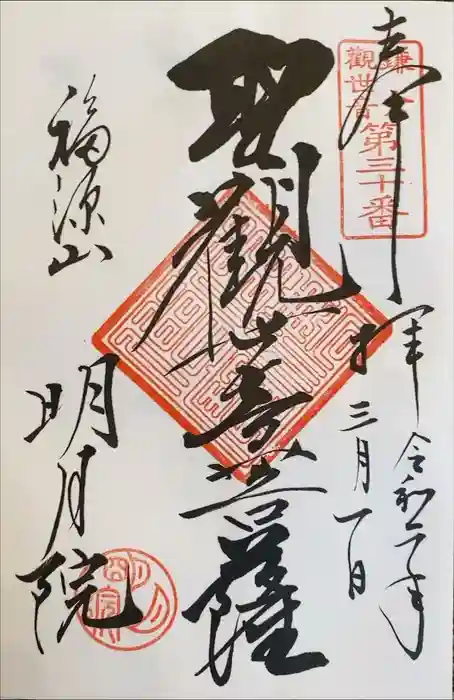 奉拝
令和二年
三月一日
鎌倉
観世音
第三十番
聖観世音菩薩
福源山
明月院